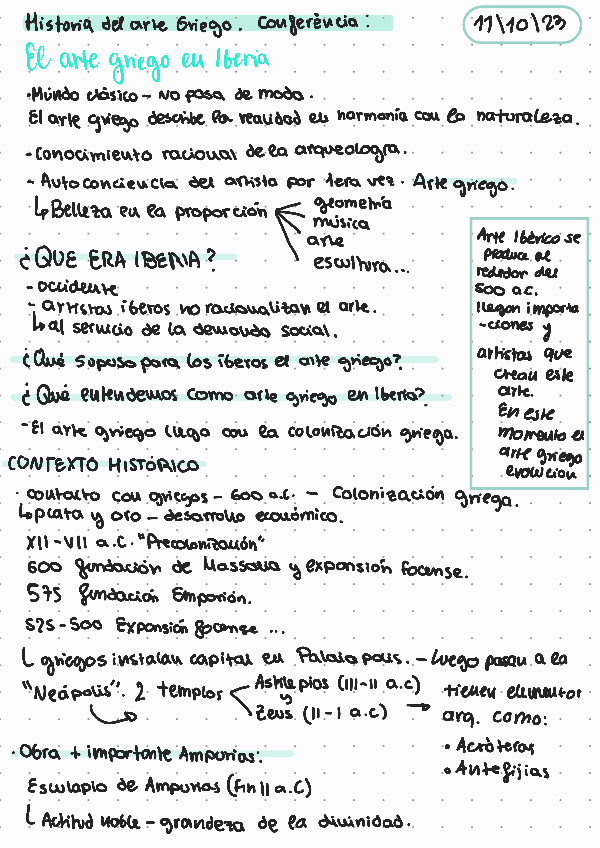 Historia del arte Griego. Conferencia:
11\10\23
El arte griego en Iberia
·Mundo clásico - No pasa de moda.
El arte griego describe la realidad en harmonía con la naturaleza.
-Conocimiento racional de la arqueologra.
- Autoconciencia del artista por 1era vez. Arte griego.
↳Belleza en la proporción
geometría
música
arte
escultura...
¿QUE ERA IBERIA?
-occidente
- artistas iberos no racionalizan el arte.
↳al servicio de la demanda social.
¿Qué supuso para los iberos el arte griego?
¿Qué entendemos como arte griego en Iberia?
-El arte griego llega con la colonización griega.
Arte Ibérico se
produce al
rededor del
500 a.C.
llegan importa
-ciones y
artistas que
crean este
arte.
En este
momento el
arte griego
evolucion
CONTEXTO HISTÓRICO
· contacto con griegos - 600 a.c. - Colonización griega.
↳plata y oro - desarrollo económico.
XII-VII a.C. "Precolonización"
600 fundación de Massalia y expansión focense.
575 fundación Emporion.
525-500 Expansión focense ...
L griegos instalan capital en Palaiapolis. - Luego pasan a la
"Neápolis". 2 templos
Asklepios (III-II a.c)
y
Zeus (II-I a.c)
→
tienen elementor
arq. como:
• Acróteras
• Antefijias
· Obra + importante Ampurias:
Esculapio de Ampurias (fin II a.C)
L Actitud noble - grandeza de la divinidad.